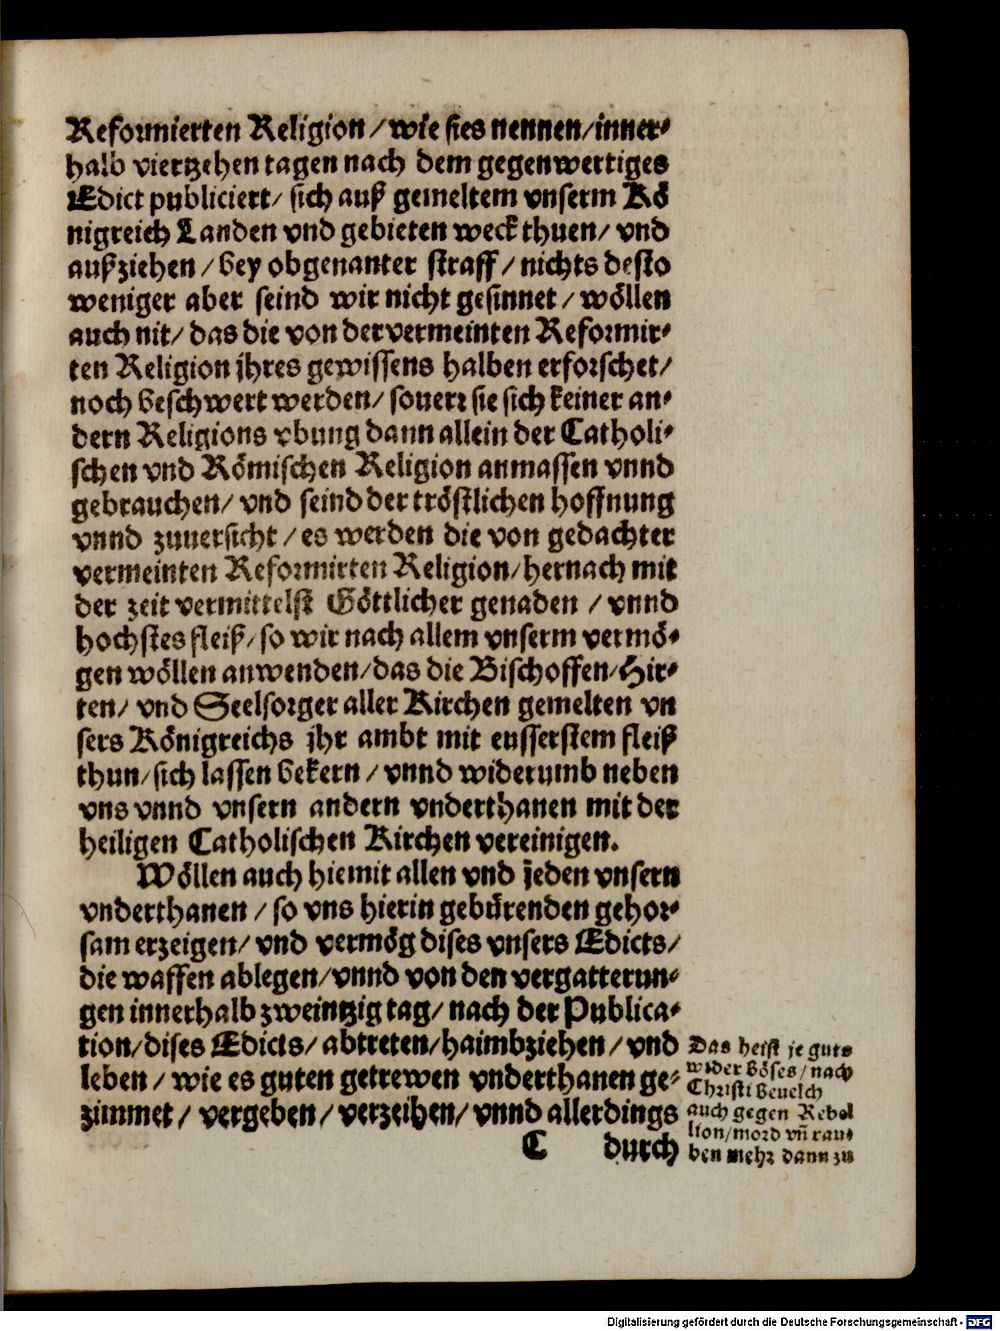 Reformierten Religion / wie sies nennen / inner⸗
halb viertzehen tagen nach dem gegenwertiges
Edict publiciert / sich auß gemeltem vnserm Kö
nigreich Landen vnd gebieten weck thuen / vnd
außziehen / bey obgenanter straff / nichts desto
weniger aber seind wir nicht gesinnet / wöllen
auch nit / das die von der vermeinten Reformir⸗
ten Religion jhres gewissens halben erforschet /
noch beschwert werden / souerr sie sich keiner an⸗
dern Religions vbung dann allein der Catholi⸗
schen vnd Römischen Religion anmassen vnnd
gebrauchen / vnd seind der tröstlichen hoffnung
vnnd zuuersicht / es werden die von gedachter
vermeinten Reformirten Religion / hernach mit
der zeit vermittelst Göttlicher genaden / vnnd
hochstes fleiß / so wir nach allem vnserm vermö⸗
gen wöllen anwenden / das die Bischoffen / Hir⸗
ten / vnd Seelsorger aller Kirchen gemelten vn
sers Königreichs jhr ambt mit eusserstem fleiß
thun / sich lassen bekern / vnnd widerumb neben
vns vnnd vnsern andern vnderthanen mit der
heiligen Catholischen Kirchen vereinigen.
Wöllen auch hiemit allen vnd jeden vnsern
vnderthanen / so vns hierin gebürenden gehor⸗
sam erzeigen / vnd vermög dises vnsers Edicts /
die waffen ablegen / vnnd von den vergatterun⸗
gen innerhalb zweintzig tag / nach der Publica⸗
tion / dises Edicts / abtreten / haimbziehen / vnd
leben / wie es guten getrewen vnderthanen ge⸗
zimmet / vergeben / verzeihen / vnnd allerdings
C durch
Das heist je guts
wider böses / nach
Christi beuelch
auch gegen Rebel
lion / mord vñ rau⸗
ben mehr dann zu
Digitalisierung gefördert durch die Deutsche Forschungsgemeinschaft - DFG